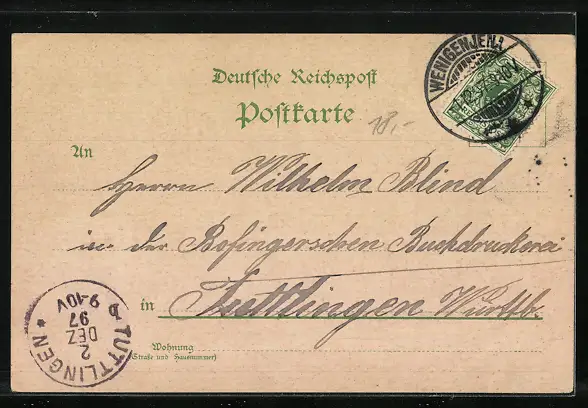 Deutsche Reichspost
Postkarte
WENIGENJENA
18,-
An
Herrn Wilhelm Blind
in der Bofingerschen Buchdruckerei
in Tuttlingen Württb.
Wohnung
(Straße und Hausnummer)
TUTTLINGEN
2
DEZ
97
9-10V